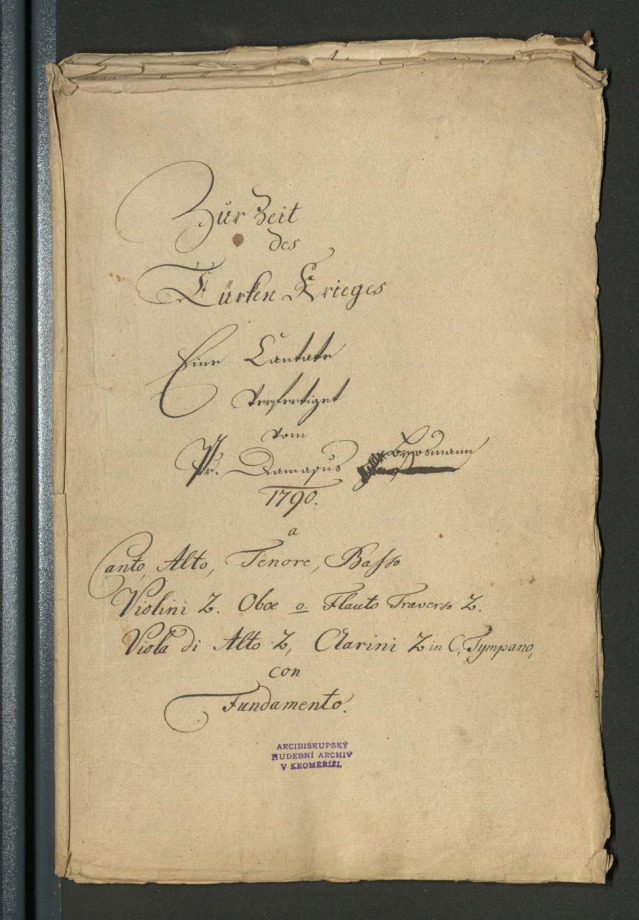 Zůr Zeit
des
Türken Krieges
Eine Cantate
Verfertiget
Vom
Pr. Damasus Brosmann
1790.
a
Canto, Alto, Tenore, Basso
Violini 2. Oboe o. Flauto Traverso 2.
Viola di Alto 2, Clarini 2 in C, Tympano,
con
Fundamento.
ARCIBISKUPSKÝ
HUDEBNÍ ARCHIV
V KROMĚŘÍŽI.